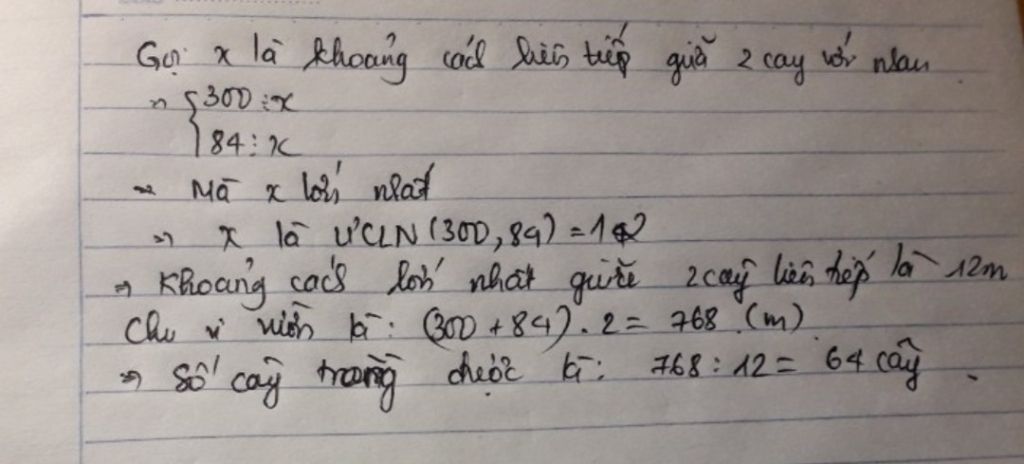 Gọi x là khoảng cách liên tiếp giữa 2 cây với nhau
=> { 300 ⋮ x
84 ⋮ x
=> Mà x lớn nhất
=> x là ƯCLN (300, 84) = 12
=> Khoảng cách lớn nhất giữa 2 cây liên tiếp là 12m
Chu vi vườn là: (300 + 84) . 2 = 768 (m)
=> Số cây trồng được là: 768 : 12 = 64 cây